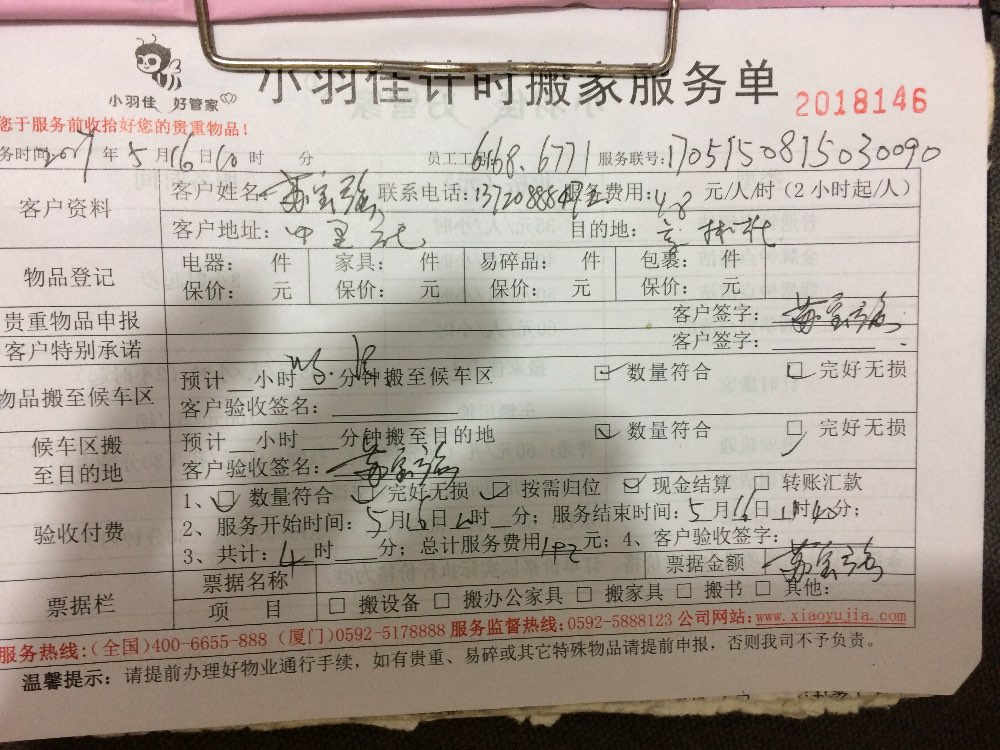 小羽佳 好管家
小羽佳计时搬家服务单
2018146
您于服务前收拾好您的贵重物品!
务时间: 2017 年 5 月 16 日 10 时 分 员工工号: 6168.6771 服务联号: 170515081503 0090
客户资料
客户姓名: 联系电话: 服务费用: 48 元/人/时(2小时起/人)
客户地址: 目的地:
物品登记
电器: 件 家具: 件 易碎品: 件 包裹: 件
保价: 元 保价: 元 保价: 元 保价: 元
贵重物品申报 客户签字:
客户特别承诺 客户签字:
物品搬至候车区
预计 小时 分钟搬至候车区 数量符合 完好无损
客户验收签名:
候车区搬至目的地
预计 小时 分钟搬至目的地 数量符合 完好无损
客户验收签名:
验收付费
1、 数量符合 完好无损 按需归位 现金结算 转账汇款
2、服务开始时间: 5 月 16 日 时 分; 服务结束时间: 5 月 16 日 时 分;
3、共计: 4 时 分; 总计服务费用 192 元; 4、客户验收签字:
票据栏
票据名称 票据金额
项 目 搬设备 搬办公家具 搬家具 搬书 其他:
服务热线:(全国)400-6655-888 (厦门)0592-5178888 服务监督热线:0592-5888123 公司网站:www.xiaoyujia.com
温馨提示: 请提前办理好物业通行手续, 如有贵重、易碎或其它特殊物品请提前申报, 否则我司不予负责。